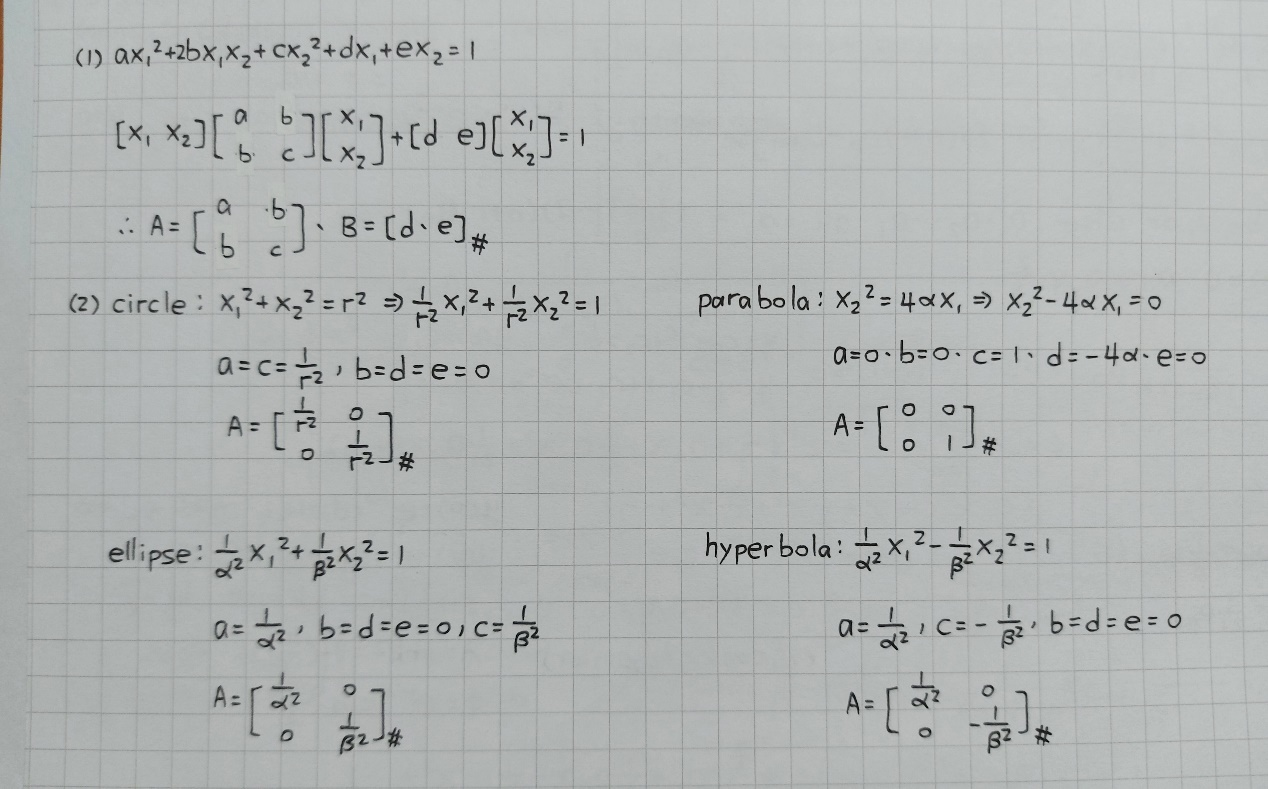 (1) ax₁²+2bx₁x₂+cx₂²+dx₁+ex₂=1
[x₁ x₂][a b; b c][x₁; x₂]+[d e][x₁; x₂]=1
∴ A=[a b; b c]、B=[d、e]#
(2) circle: x₁²+x₂²=r² ⇒ 1/r² x₁²+1/r² x₂²=1
a=c=1/r², b=d=e=0
A=[1/r² 0; 0 1/r²]#
parabola: x₂²=4αx₁ ⇒ x₂²-4αx₁=0
a=0、b=0、c=1、d=-4α、e=0
A=[0 0; 0 1]#
ellipse: 1/α² x₁²+1/β² x₂²=1
a=1/α², b=d=e=0, c=1/β²
A=[1/α² 0; 0 1/β²]#
hyperbola: 1/α² x₁²-1/β² x₂²=1
a=1/α², c=-1/β², b=d=e=0
A=[1/α² 0; 0 -1/β²]#